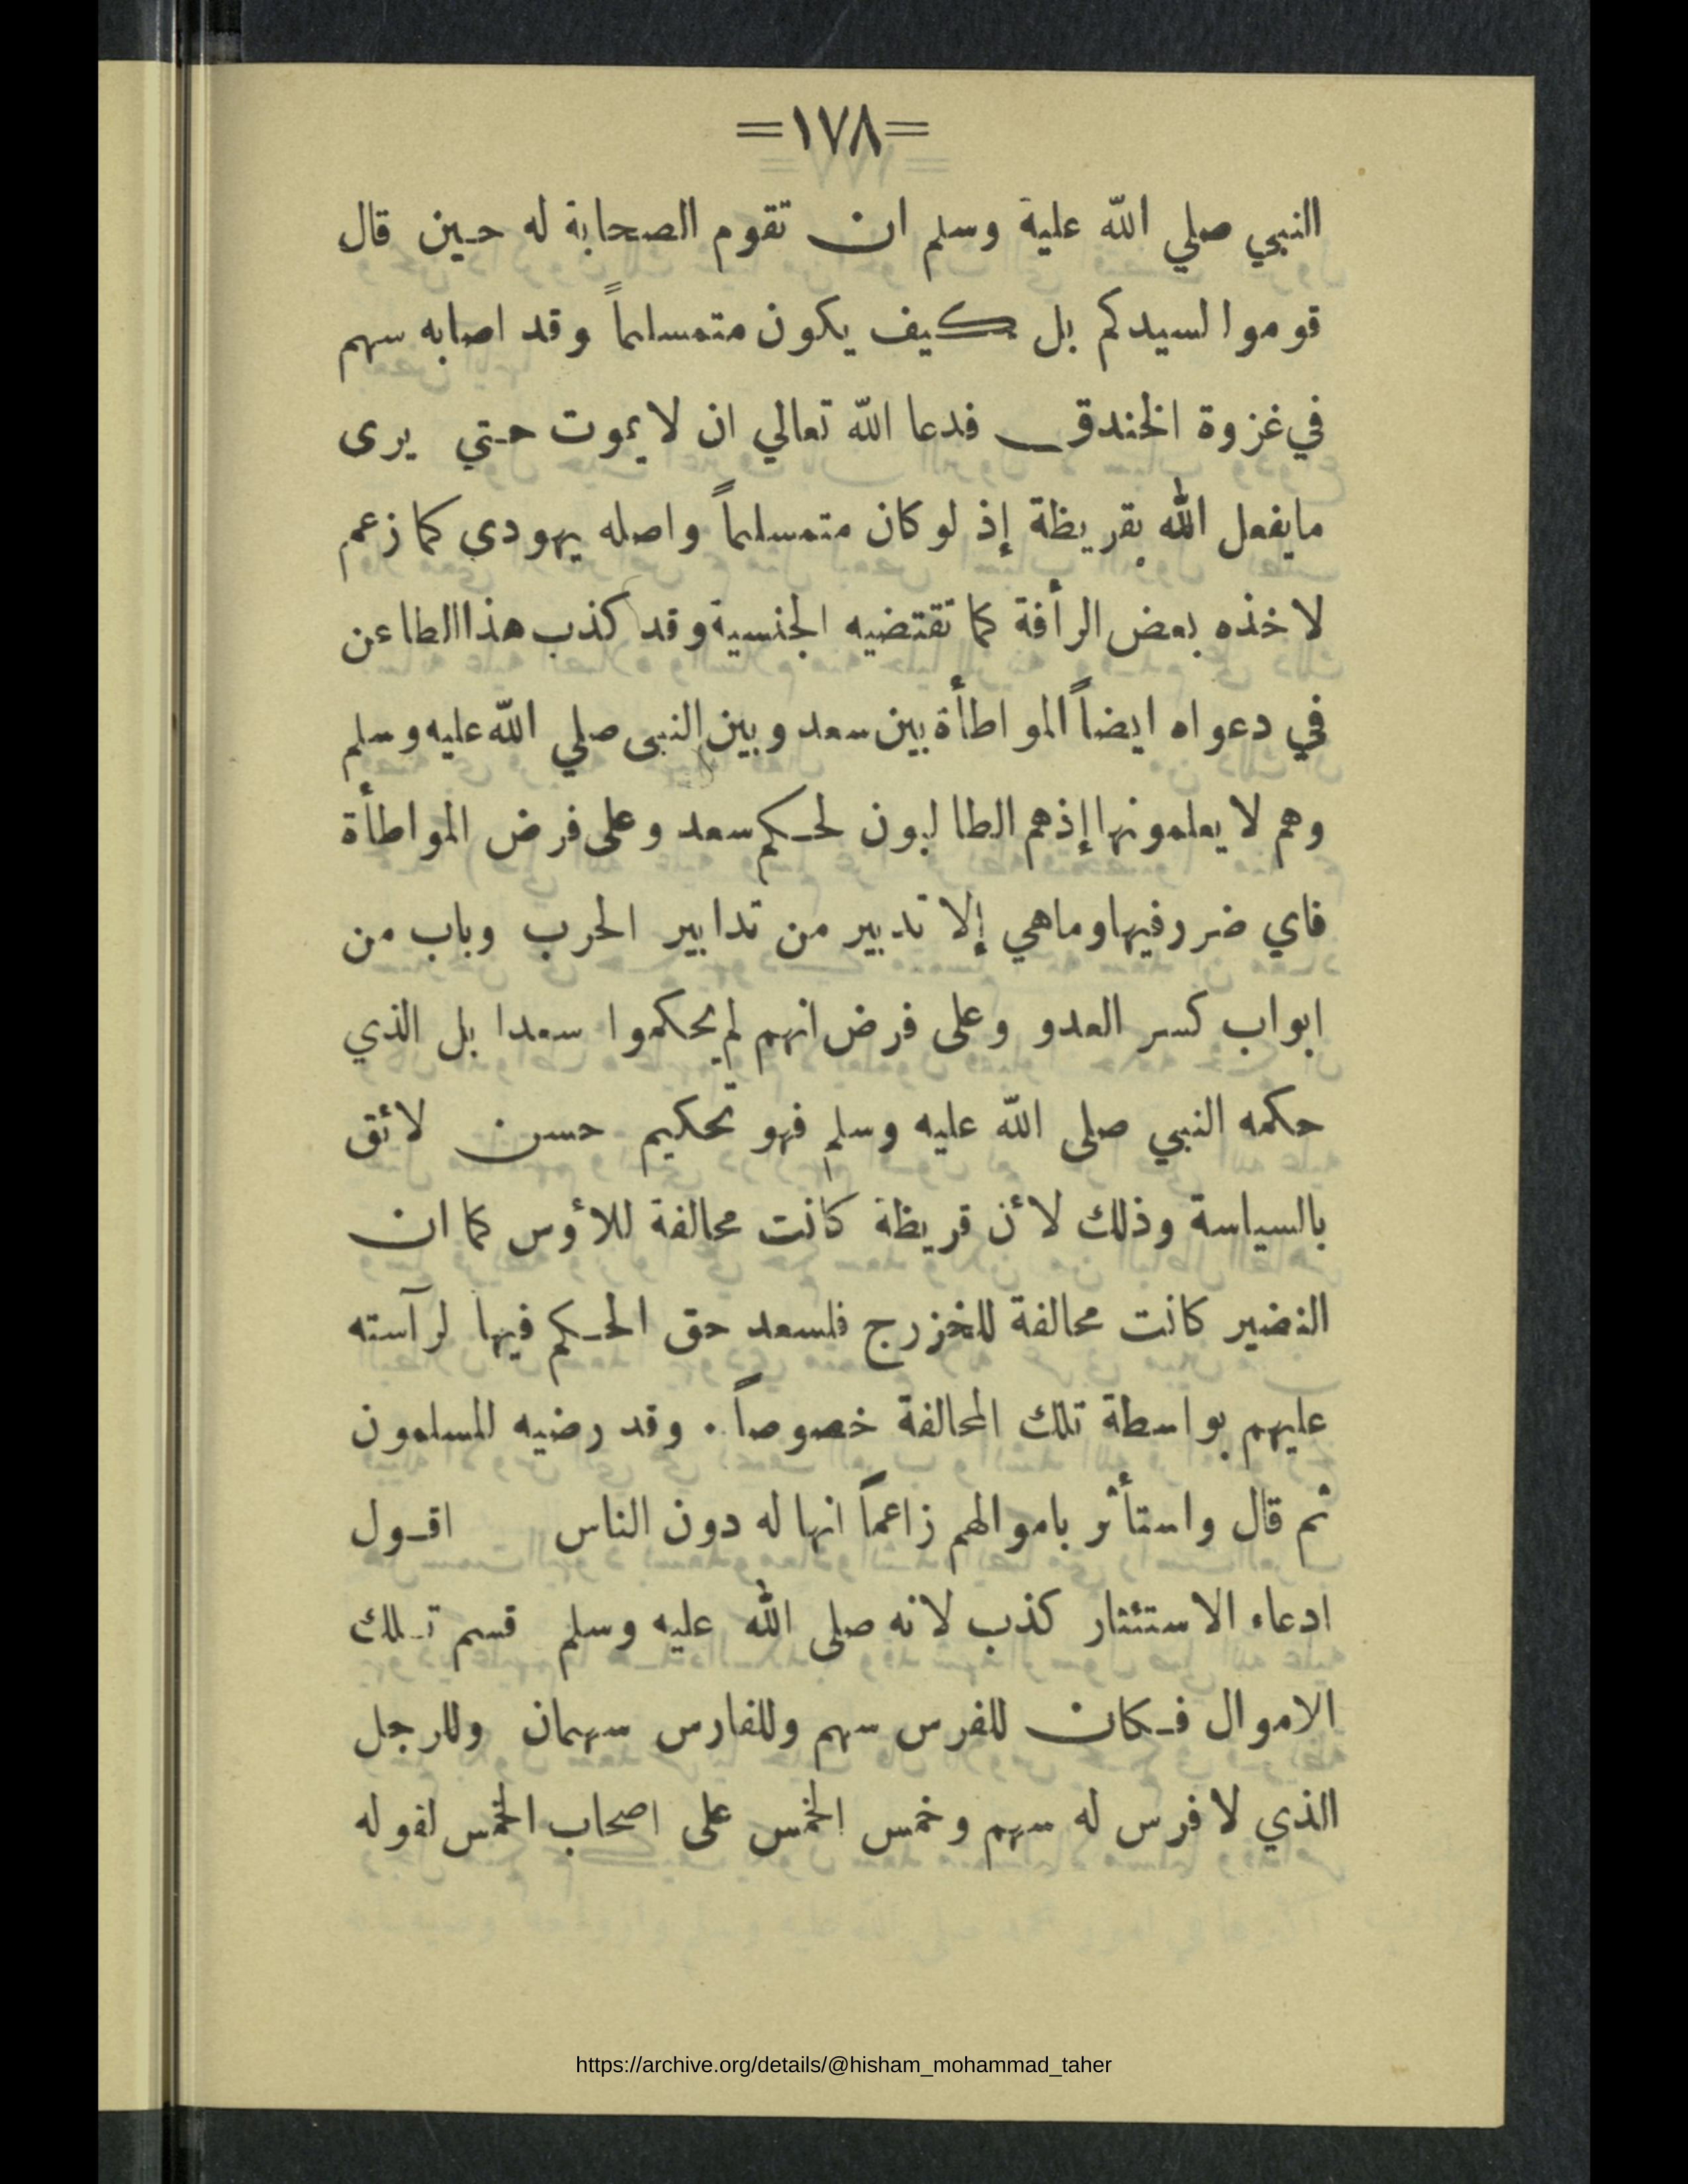 =١٧٨=
النبي صلي الله علية وسلم ان تقوم الصحابة له حين قال
قوموا لسيدكم بل كيف يكون متمسلماً وقد اصابه سهم
في غزوة الخندق فدعا الله تعالي ان لا يموت حتي يرى
مايفعل الله بقريظة إذ لو كان متمسلماً واصله يهودي كما زعم
لاخذه بعض الرأفة كما تقتضيه الجنسية وقد كذب هذا الطاعن
في دعواه ايضاً المواطأة بين سعد وبين النبى صلي الله عليه وسلم
وهم لا يعلمونها إذهم الطالبون لحكم سعد وعلى فرض المواطأة
فاي ضرر فيها وماهي إلا تدبير من تدابير الحرب وباب من
ابواب كسر العدو وعلى فرض انهم لم يحكموا سعدا بل الذي
حكمه النبي صلى الله عليه وسلم فهو تحكيم حسن لائق
بالسياسة وذلك لأن قريظة كانت محالفة للأوس كما ان
النضير كانت محالفة للخزرج فلسعد حق الحكم فيها لرآسته
عليهم بواسطة تلك المحالفة خصوصاً . وقد رضيه المسلمون
ثم قال واستأثر باموالهم زاعماً انها له دون الناس اقول
ادعاء الاستئثار كذب لانه صلى الله عليه وسلم قسم تلك
الاموال فكان للفرس سهم وللفارس سهمان وللرجل
الذي لا فرس له سهم وخمس الخمس على اصحاب الخمس لقوله
https://archive.org/details/@hisham_mohammad_taher